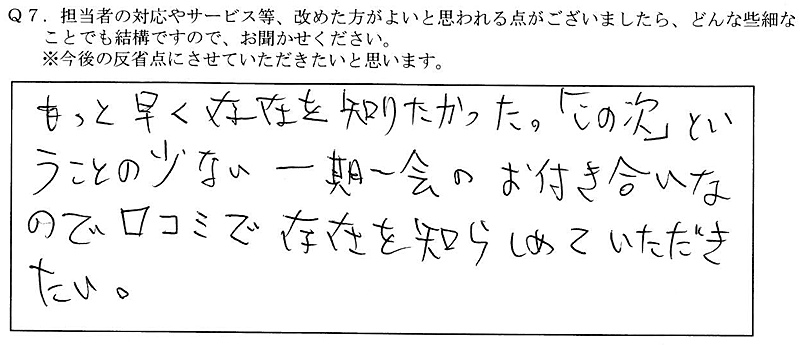 Q7．担当者の対応やサービス等、改めた方がよいと思われる点がございましたら、どんな些細な
ことでも結構ですので、お聞かせください。
※今後の反省点にさせていただきたいと思います。
もっと早く存在を知りたかった。「この次」とい
うことの少ない一期一会のお付き合いな
ので口コミで存在を知らしめていただき
たい。